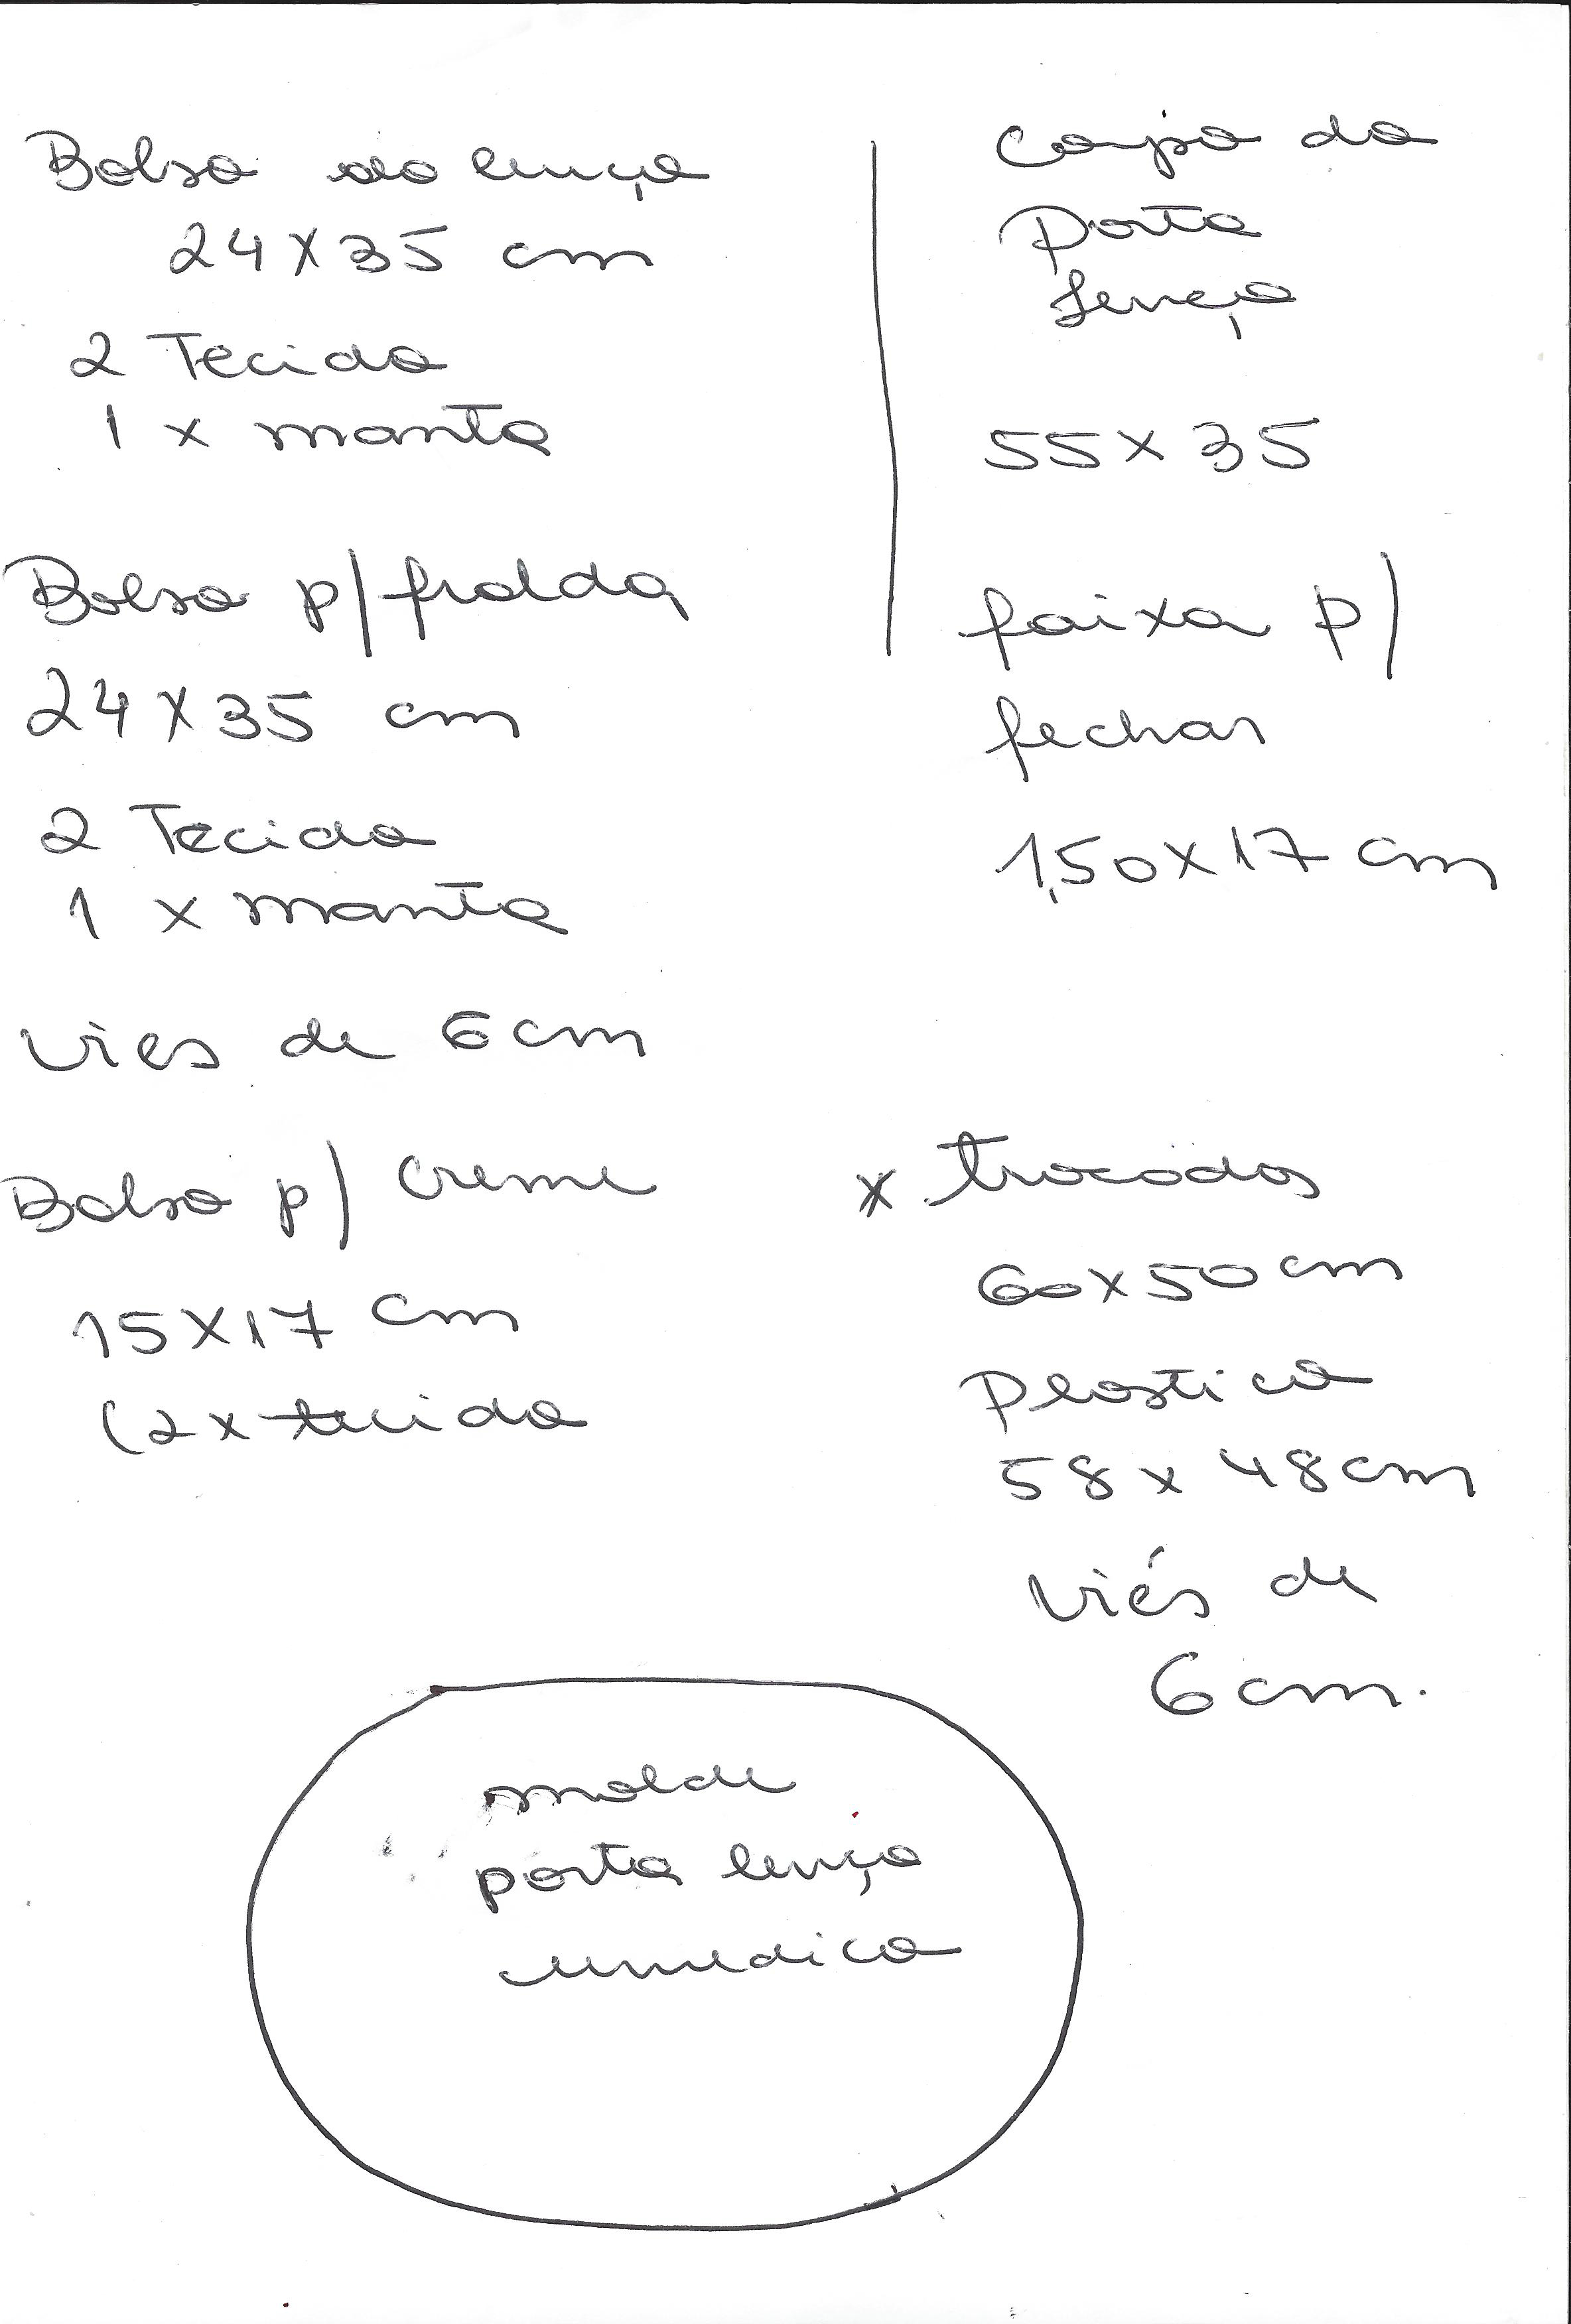 Bolso do lenço
24 x 35 cm
2 Tecido
1 x manta
Bolso p/ fralda
24 x 35 cm
2 Tecido
1 x manta
vies de 6 cm
Bolso p/ creme
15 x 17 cm
(2 x tecido
Corpo do
Porta
Lenço
55 x 35
faixa p/
fechar
1,50 x 17 cm
x trocador
60 x 50 cm
Plastico
58 x 48 cm
viés de
6 cm.
molde
porta lenço
umedico